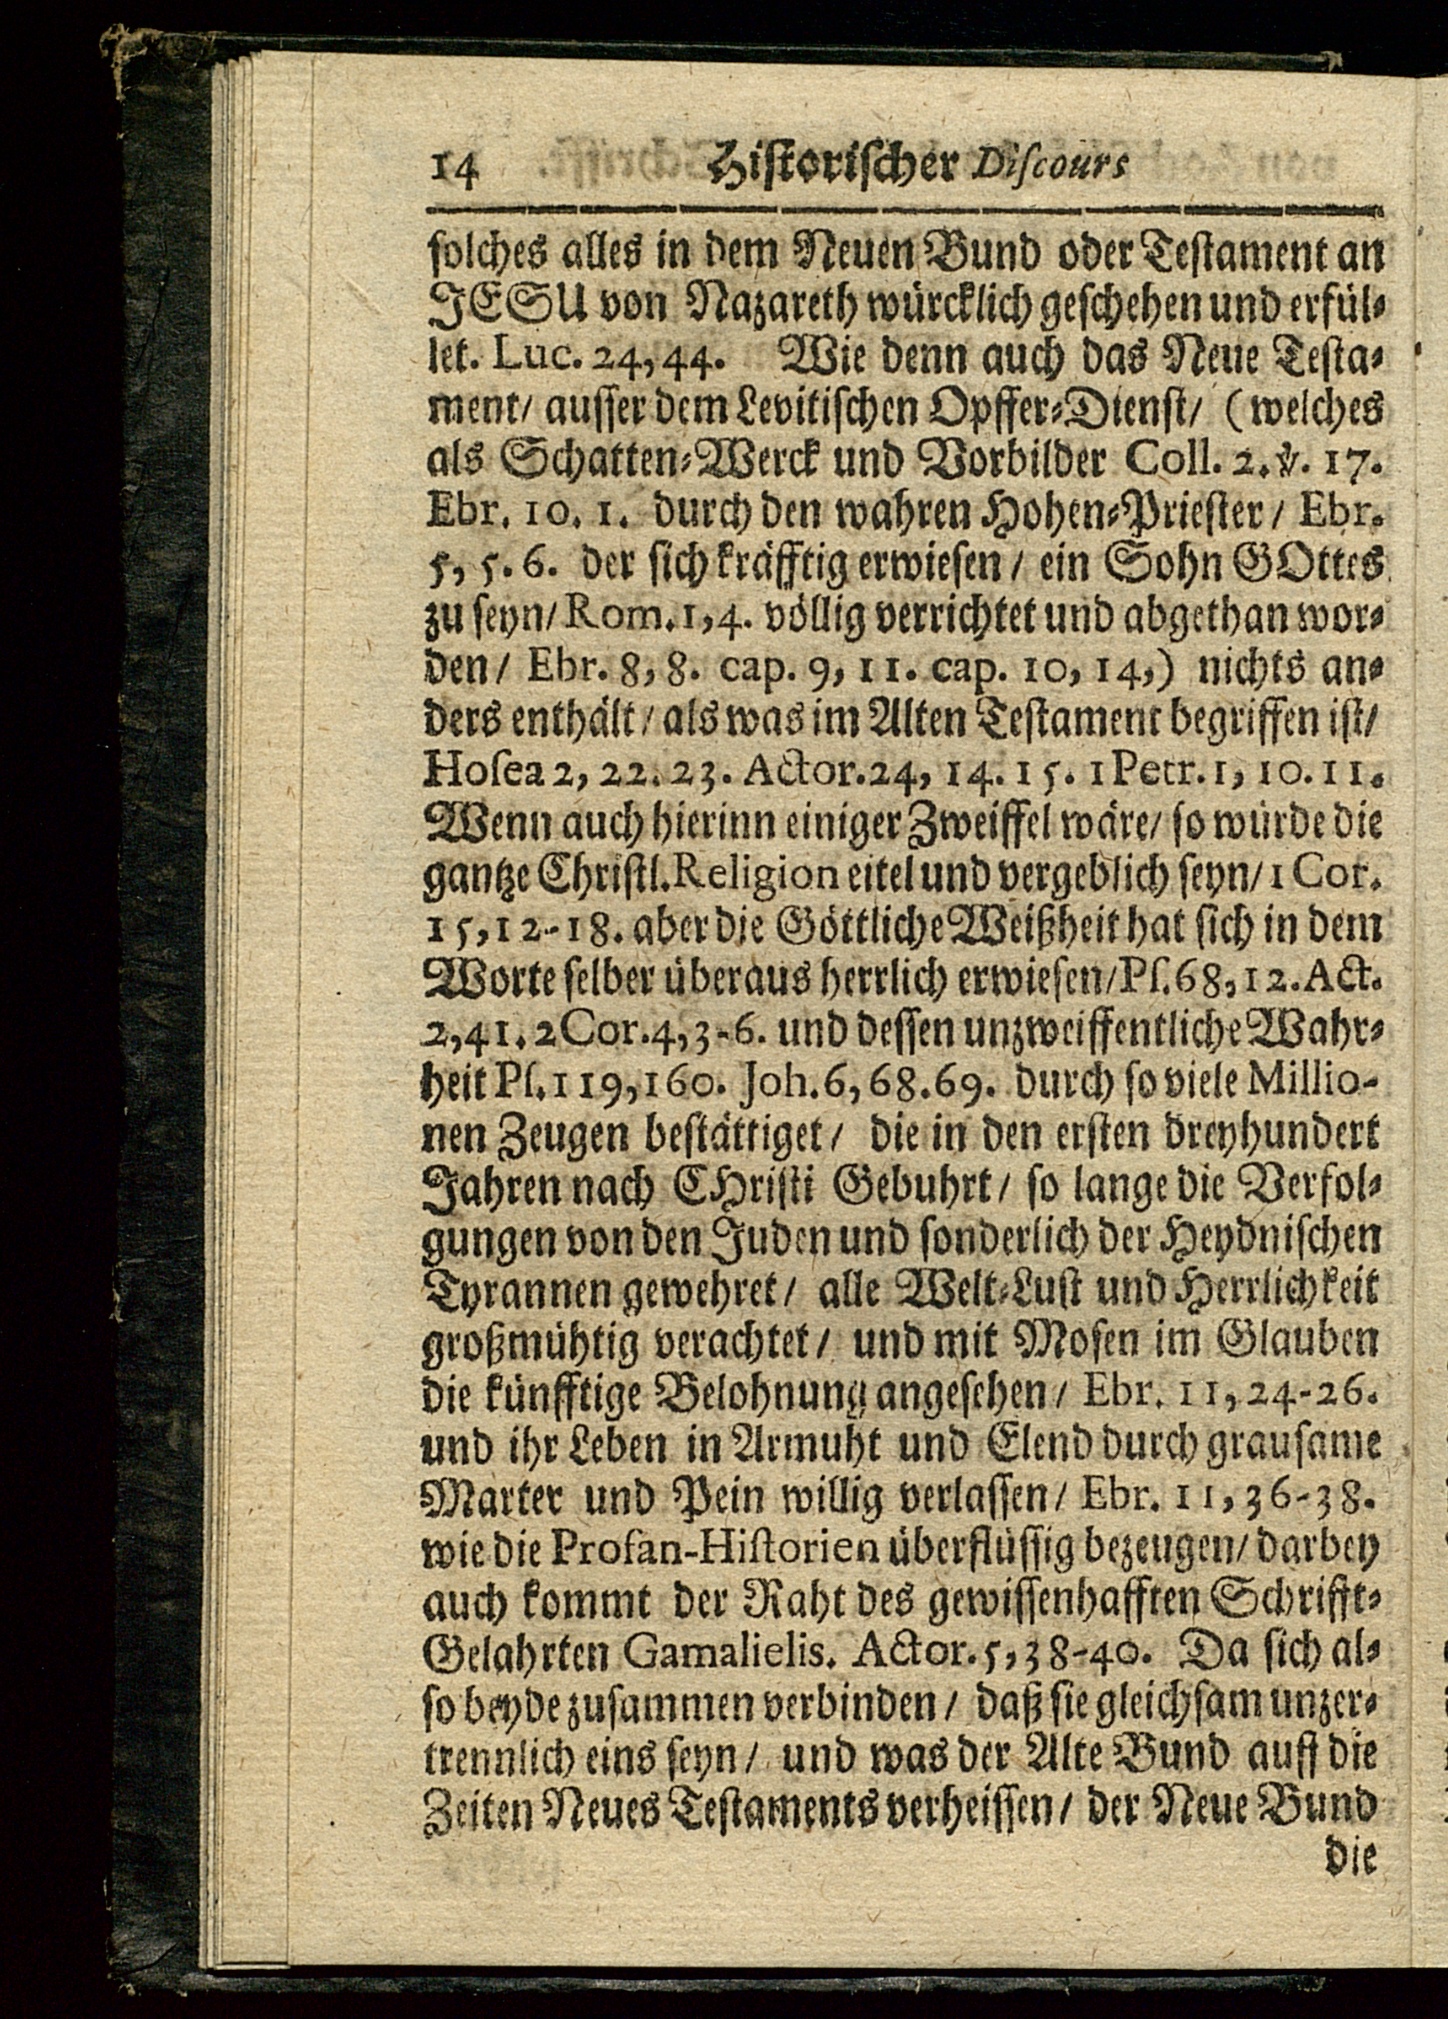 14 Historischer Discours
solches alles in dem Neuen Bund oder Testament an
JESU von Nazareth würcklich geschehen und erfül-
let. Luc. 24, 44. Wie denn auch das Neue Testa-
ment/ ausser dem Levitischen Opffer-Dienst/ (welches
als Schatten-Werck und Vorbilder Coll. 2. ℣. 17.
Ebr. 10. 1. durch den wahren Hohen-Priester / Ebr.
5, 5. 6. der sich kräfftig erwiesen / ein Sohn GOttes
zu seyn/ Rom. 1, 4. völlig verrichtet und abgethan wor-
den / Ebr. 8, 8. cap. 9, 11. cap. 10, 14,) nichts an-
ders enthält / als was im Alten Testament begriffen ist/
Hosea 2, 22. 23. Actor. 24, 14. 15. 1 Petr. 1, 10. 11.
Wenn auch hierinn einiger Zweiffel wäre/ so würde die
gantze Christl. Religion eitel und vergeblich seyn/ 1 Cor.
15, 12-18. aber die Göttliche Weißheit hat sich in dem
Worte selber überaus herrlich erwiesen/ Ps. 68, 12. Act.
2, 41. 2 Cor. 4, 3-6. und dessen unzweiffentliche Wahr-
heit Ps. 119, 160. Joh. 6, 68. 69. durch so viele Millio-
nen Zeugen bestättiget / die in den ersten dreyhundert
Jahren nach CHristi Gebuhrt / so lange die Verfol-
gungen von den Juden und sonderlich der Heydnischen
Tyrannen gewehret / alle Welt-Lust und Herrlichkeit
großmühtig verachtet / und mit Mosen im Glauben
die künfftige Belohnung angesehen / Ebr. 11, 24-26.
und ihr Leben in Armuht und Elend durch grausame
Marter und Pein willig verlassen / Ebr. 11, 36-38.
wie die Profan-Historien überflüssig bezeugen/ darbey
auch kommt der Raht des gewissenhafften Schrifft-
Gelahrten Gamalielis. Actor. 5, 38-40. Da sich al-
so beyde zusammen verbinden / daß sie gleichsam unzer-
trennlich eins seyn / und was der Alte Bund auff die
Zeiten Neues Testaments verheissen / der Neue Bund
die